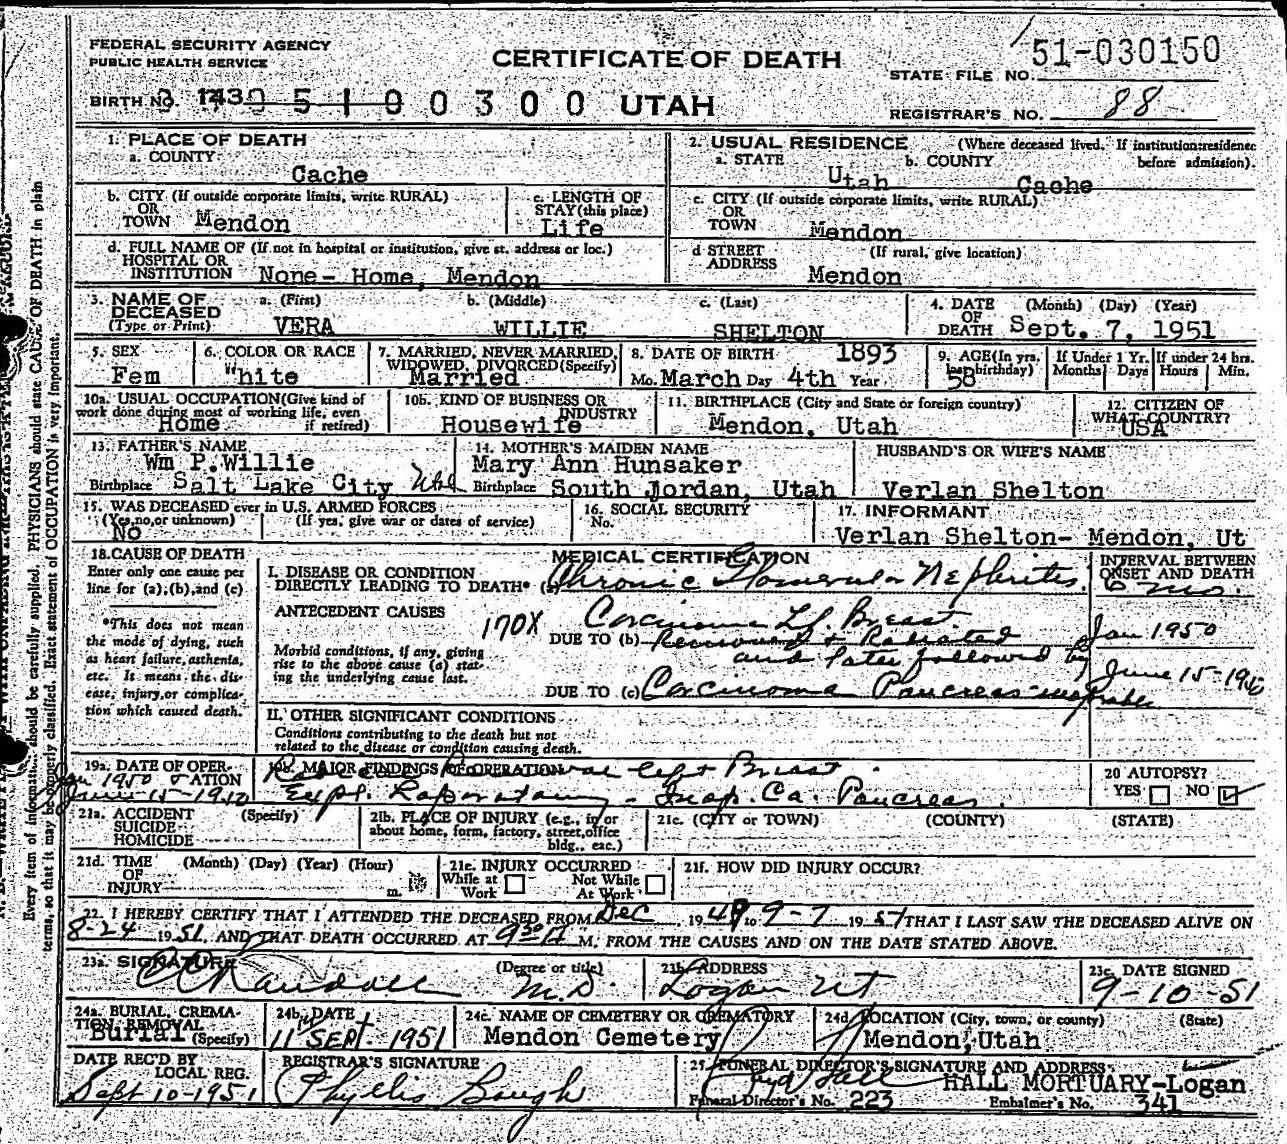 FEDERAL SECURITY AGENCY
PUBLIC HEALTH SERVICE
CERTIFICATE OF DEATH
51-030150
STATE FILE NO.
BIRTH NO. 0 0 3 0 0 UTAH
REGISTRAR'S NO. 88
1. PLACE OF DEATH
a. COUNTY
Cache
2. USUAL RESIDENCE (Where deceased lived. If institution: residence before admission).
a. STATE b. COUNTY
Utah Cache
b. CITY (If outside corporate limits, write RURAL)
OR
TOWN Mendon
c. LENGTH OF
STAY (this place)
Life
c. CITY (If outside corporate limits, write RURAL)
OR
TOWN Mendon
d. FULL NAME OF (If not in hospital or institution, give st. address or loc.)
HOSPITAL OR
INSTITUTION None- Home, Mendon
d STREET (If rural, give location)
ADDRESS
Mendon
3. NAME OF a. (First) b. (Middle) c. (Last)
DECEASED
(Type or Print) VERA WILLIE SHELTON
4. DATE (Month) (Day) (Year)
OF
DEATH Sept. 7, 1951
5. SEX
Fem
6. COLOR OR RACE
White
7. MARRIED, NEVER MARRIED,
WIDOWED, DIVORCED (Specify)
Married
8. DATE OF BIRTH 1893
Mo. March Day 4th Year
9. AGE (In yrs. last birthday)
58
If Under 1 Yr. If under 24 hrs.
Months Days Hours Min.
10a. USUAL OCCUPATION (Give kind of
work done during most of working life, even
if retired)
Home
10b. KIND OF BUSINESS OR
INDUSTRY
Housewife
11. BIRTHPLACE (City and State or foreign country)
Mendon, Utah
12. CITIZEN OF
WHAT COUNTRY?
USA
13. FATHER'S NAME
Wm P. Willie
Birthplace Salt Lake City Utah
14. MOTHER'S MAIDEN NAME
Mary Ann Hunsaker
Birthplace South Jordan, Utah
HUSBAND'S OR WIFE'S NAME
Verlan Shelton
15. WAS DECEASED ever in U.S. ARMED FORCES
(Yes, no, or unknown) (If yes, give war or dates of service)
No
16. SOCIAL SECURITY
No.
17. INFORMANT
Verlan Shelton- Mendon, Ut
18. CAUSE OF DEATH
Enter only one cause per
line for (a), (b), and (c)
*This does not mean
the mode of dying, such
as heart failure, asthenia,
etc. It means the dis-
ease, injury, or complica-
tion which caused death.
MEDICAL CERTIFICATION
I. DISEASE OR CONDITION
DIRECTLY LEADING TO DEATH* (a) Chronic Glomerular Nephritis
INTERVAL BETWEEN
ONSET AND DEATH
6 mo.
ANTECEDENT CAUSES
170X
Carcinoma Lf. Breast
Morbid conditions, if any, giving
rise to the above cause (a) stat-
ing the underlying cause last.
DUE TO (b) Removed & Radiated Jan 1950
and later followed by
June 15-1950
DUE TO (c) Carcinoma Pancreas inoperable
II. OTHER SIGNIFICANT CONDITIONS
Conditions contributing to the death but not
related to the disease or condition causing death.
19a. DATE OF OPER-
ATION
Jan 1950
June 15-1950
19b. MAJOR FINDINGS OF OPERATION
Radical Removal left Breast.
Expl. Laporatomy - Inop. Ca. Pancreas.
20 AUTOPSY?
YES NO
21a. ACCIDENT (Specify)
SUICIDE
HOMICIDE
21b. PLACE OF INJURY (e.g., in or
about home, form, factory, street, office
bldg., etc.)
21c. (CITY or TOWN) (COUNTY) (STATE)
21d. TIME (Month) (Day) (Year) (Hour)
OF
INJURY m.
21e. INJURY OCCURRED
While at Work Not While At Work
21f. HOW DID INJURY OCCUR?
22. I HEREBY CERTIFY THAT I ATTENDED THE DECEASED FROM Dec 1949 to 9-7 1951 THAT I LAST SAW THE DECEASED ALIVE ON
8-24 1951. AND THAT DEATH OCCURRED AT 9:30 A M. FROM THE CAUSES AND ON THE DATE STATED ABOVE.
23a. SIGNATURE (Degree or title)
Randall M.D.
23b. ADDRESS
Logan Ut
23c. DATE SIGNED
9-10-51
24a. BURIAL, CREMA-
TION, REMOVAL
(Specify)
Burial
24b. DATE
11th SEPT. 1951
24c. NAME OF CEMETERY OR CREMATORY
Mendon Cemetery
24d. LOCATION (City, town, or county) (State)
Mendon, Utah
DATE REC'D BY
LOCAL REG.
Sept 10-1951
REGISTRAR'S SIGNATURE
Phyllis Baugh
25. FUNERAL DIRECTOR'S SIGNATURE AND ADDRESS
Hall HALL MORTUARY-Logan
Funeral Director's No. 223 Embalmer's No. 341
Every item of information should be carefully supplied. PHYSICIANS should state CAUSE OF DEATH in plain
terms, so that it may be properly classified. Exact statement of OCCUPATION is very important.